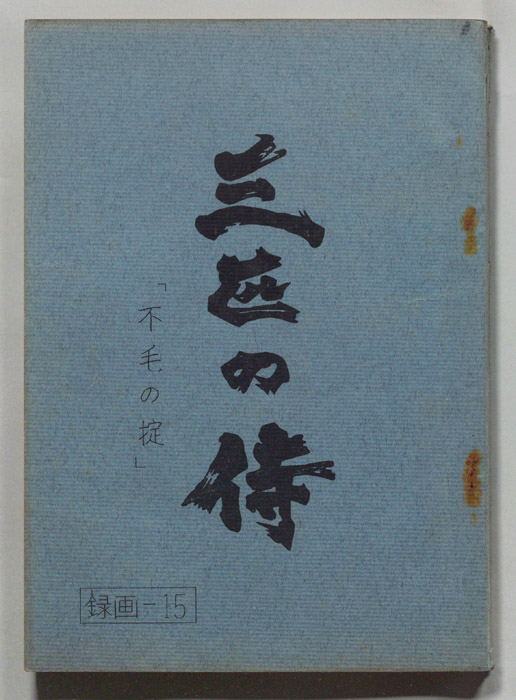 三匹の侍
「不毛の掟」
録画-15